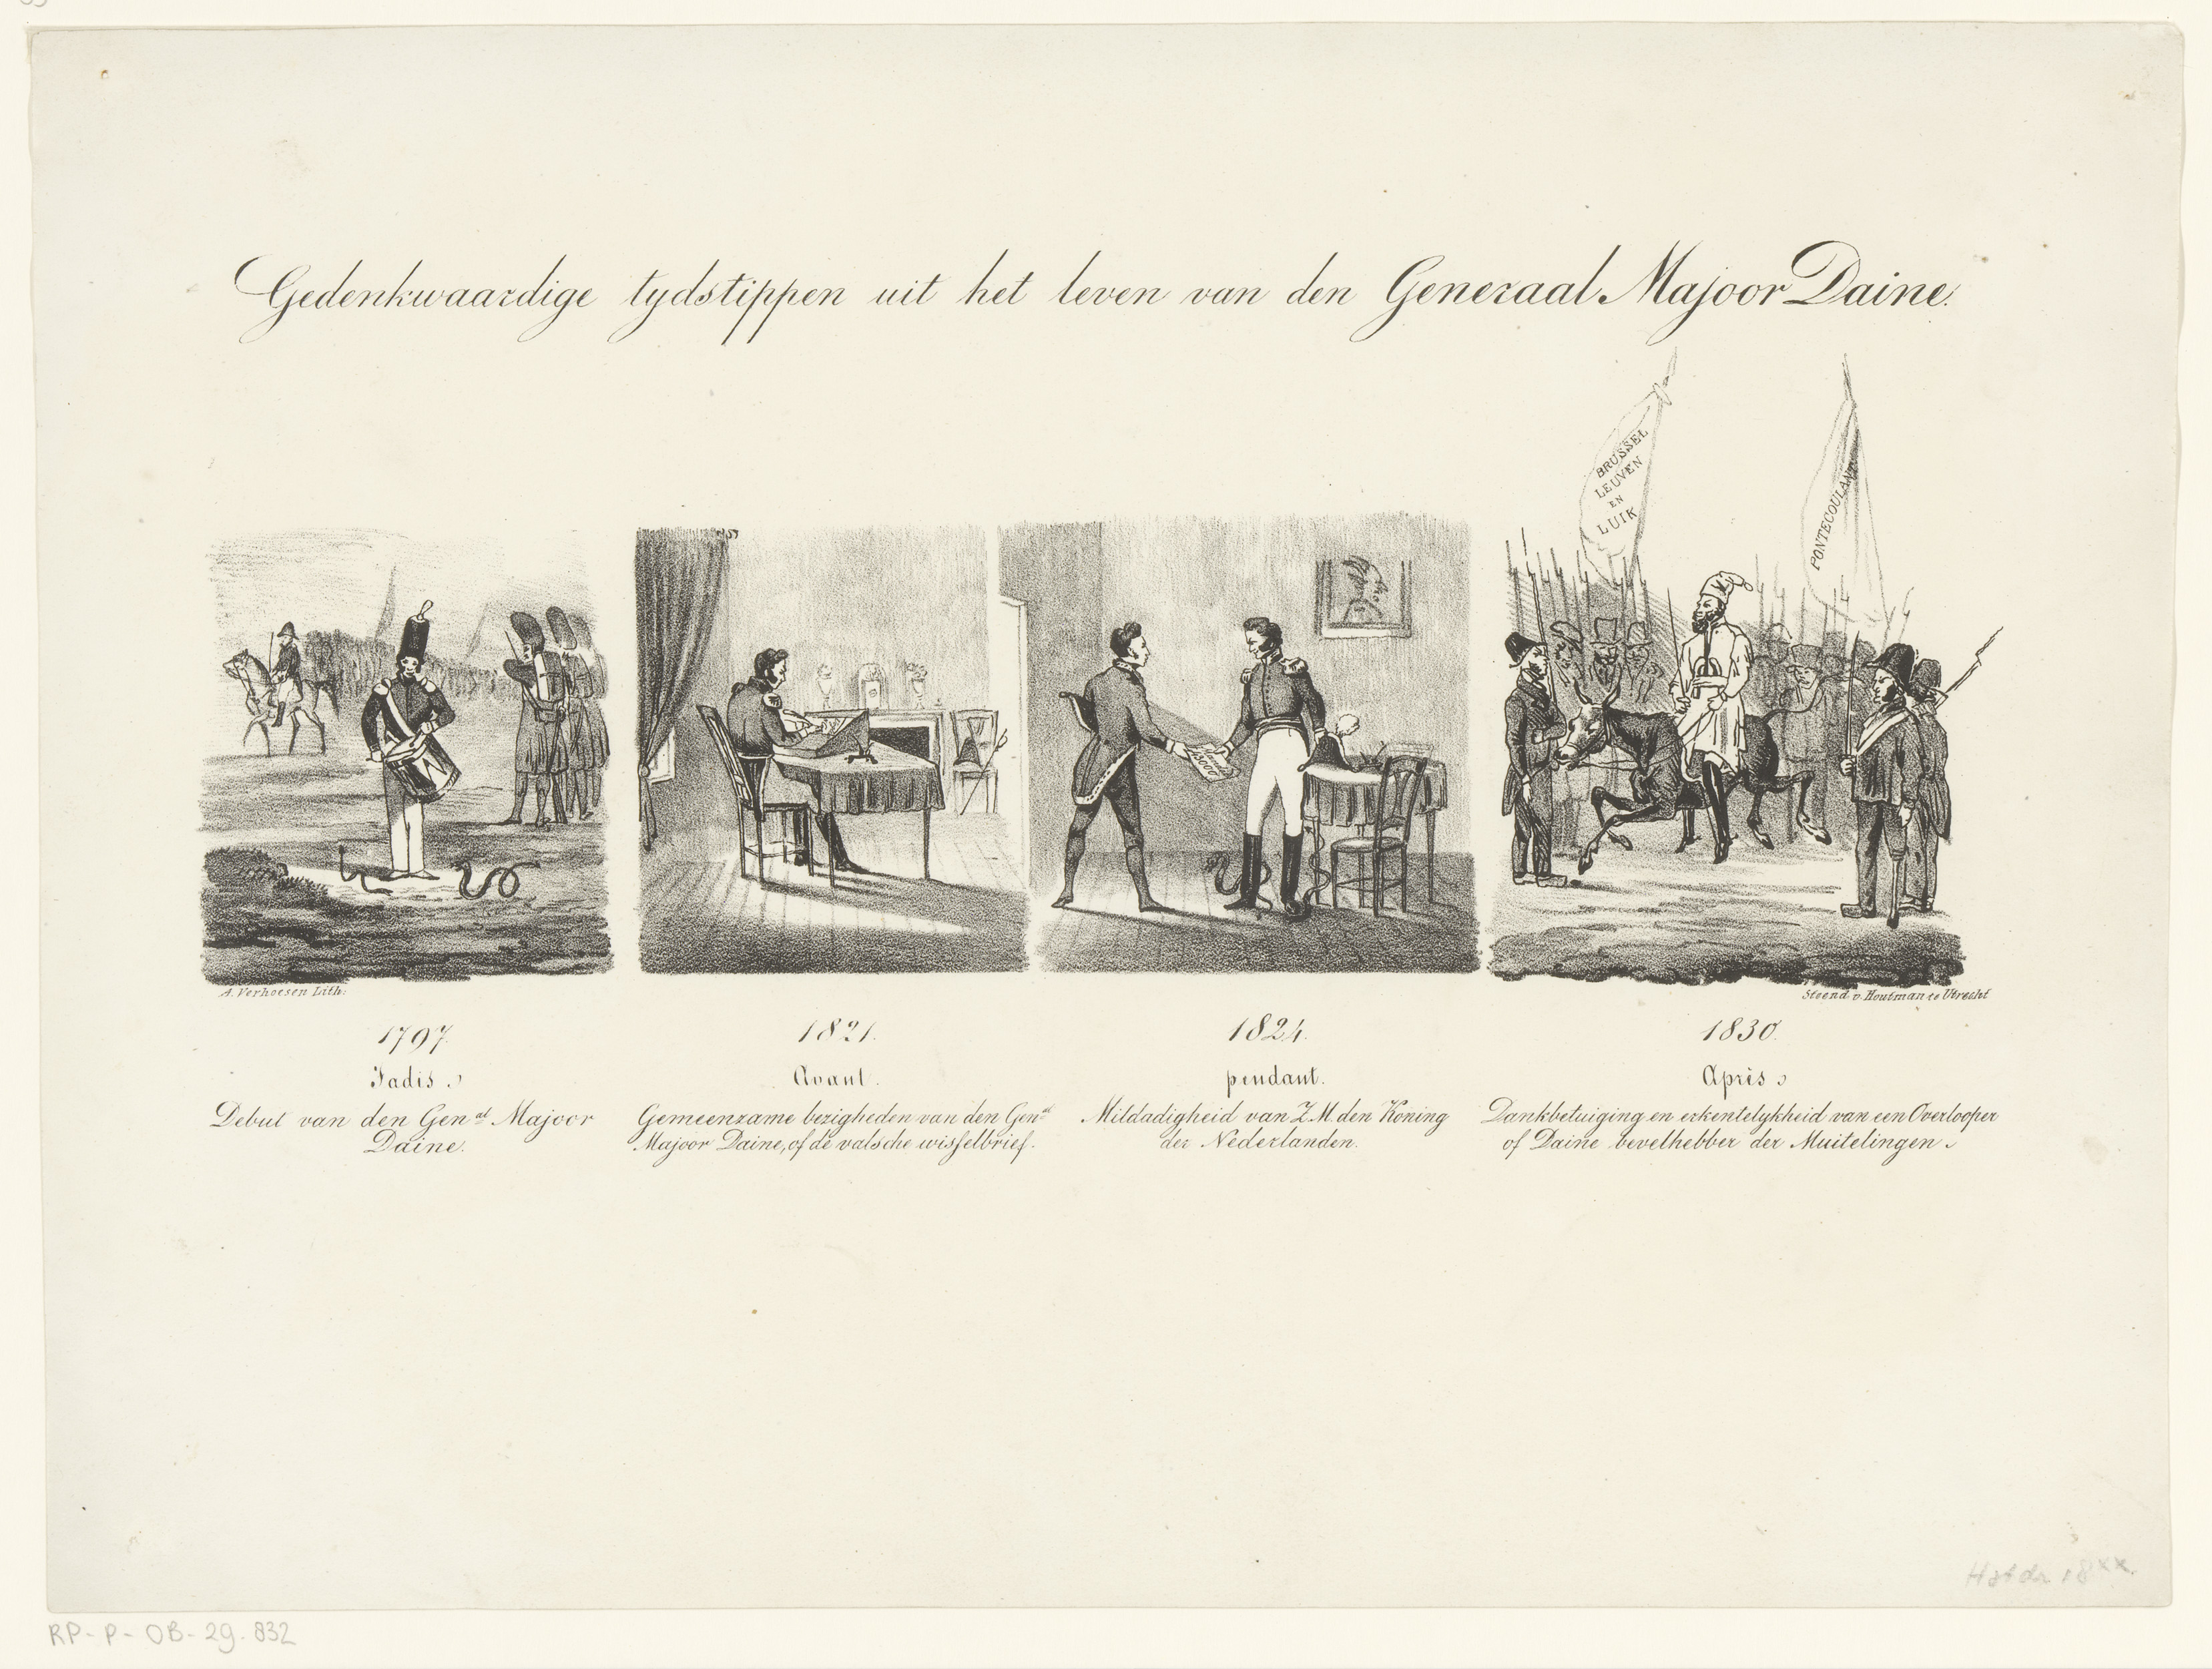 Gedenkwaardige tydstippen uit het leven van den Generaal Majoor Daine.
BRUSSEL
LEUVEN
EN
LUIK
PONTECOULANT
5000
A. Verhoesen Lith:
Steend. v. Houtman te Utrecht
1797.
Jadis.
Debut van den Gen.al Majoor
Daine.
1821.
Avant.
Gemeenzame bezigheden van den Gen.al
Majoor Daine, of de valsche wisselbrief.
1824.
pendant.
Mildadigheid van Z.M. den Koning
der Nederlanden.
1830.
Après.
Dankbetuiging en erkentelykheid van een Overlooper
of Daine bevelhebber der Muitelingen.
RP-P-OB-29.832